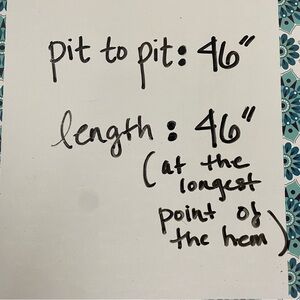 pit to pit: 46"
length: 46"
(at the
longest
point of
the hem)